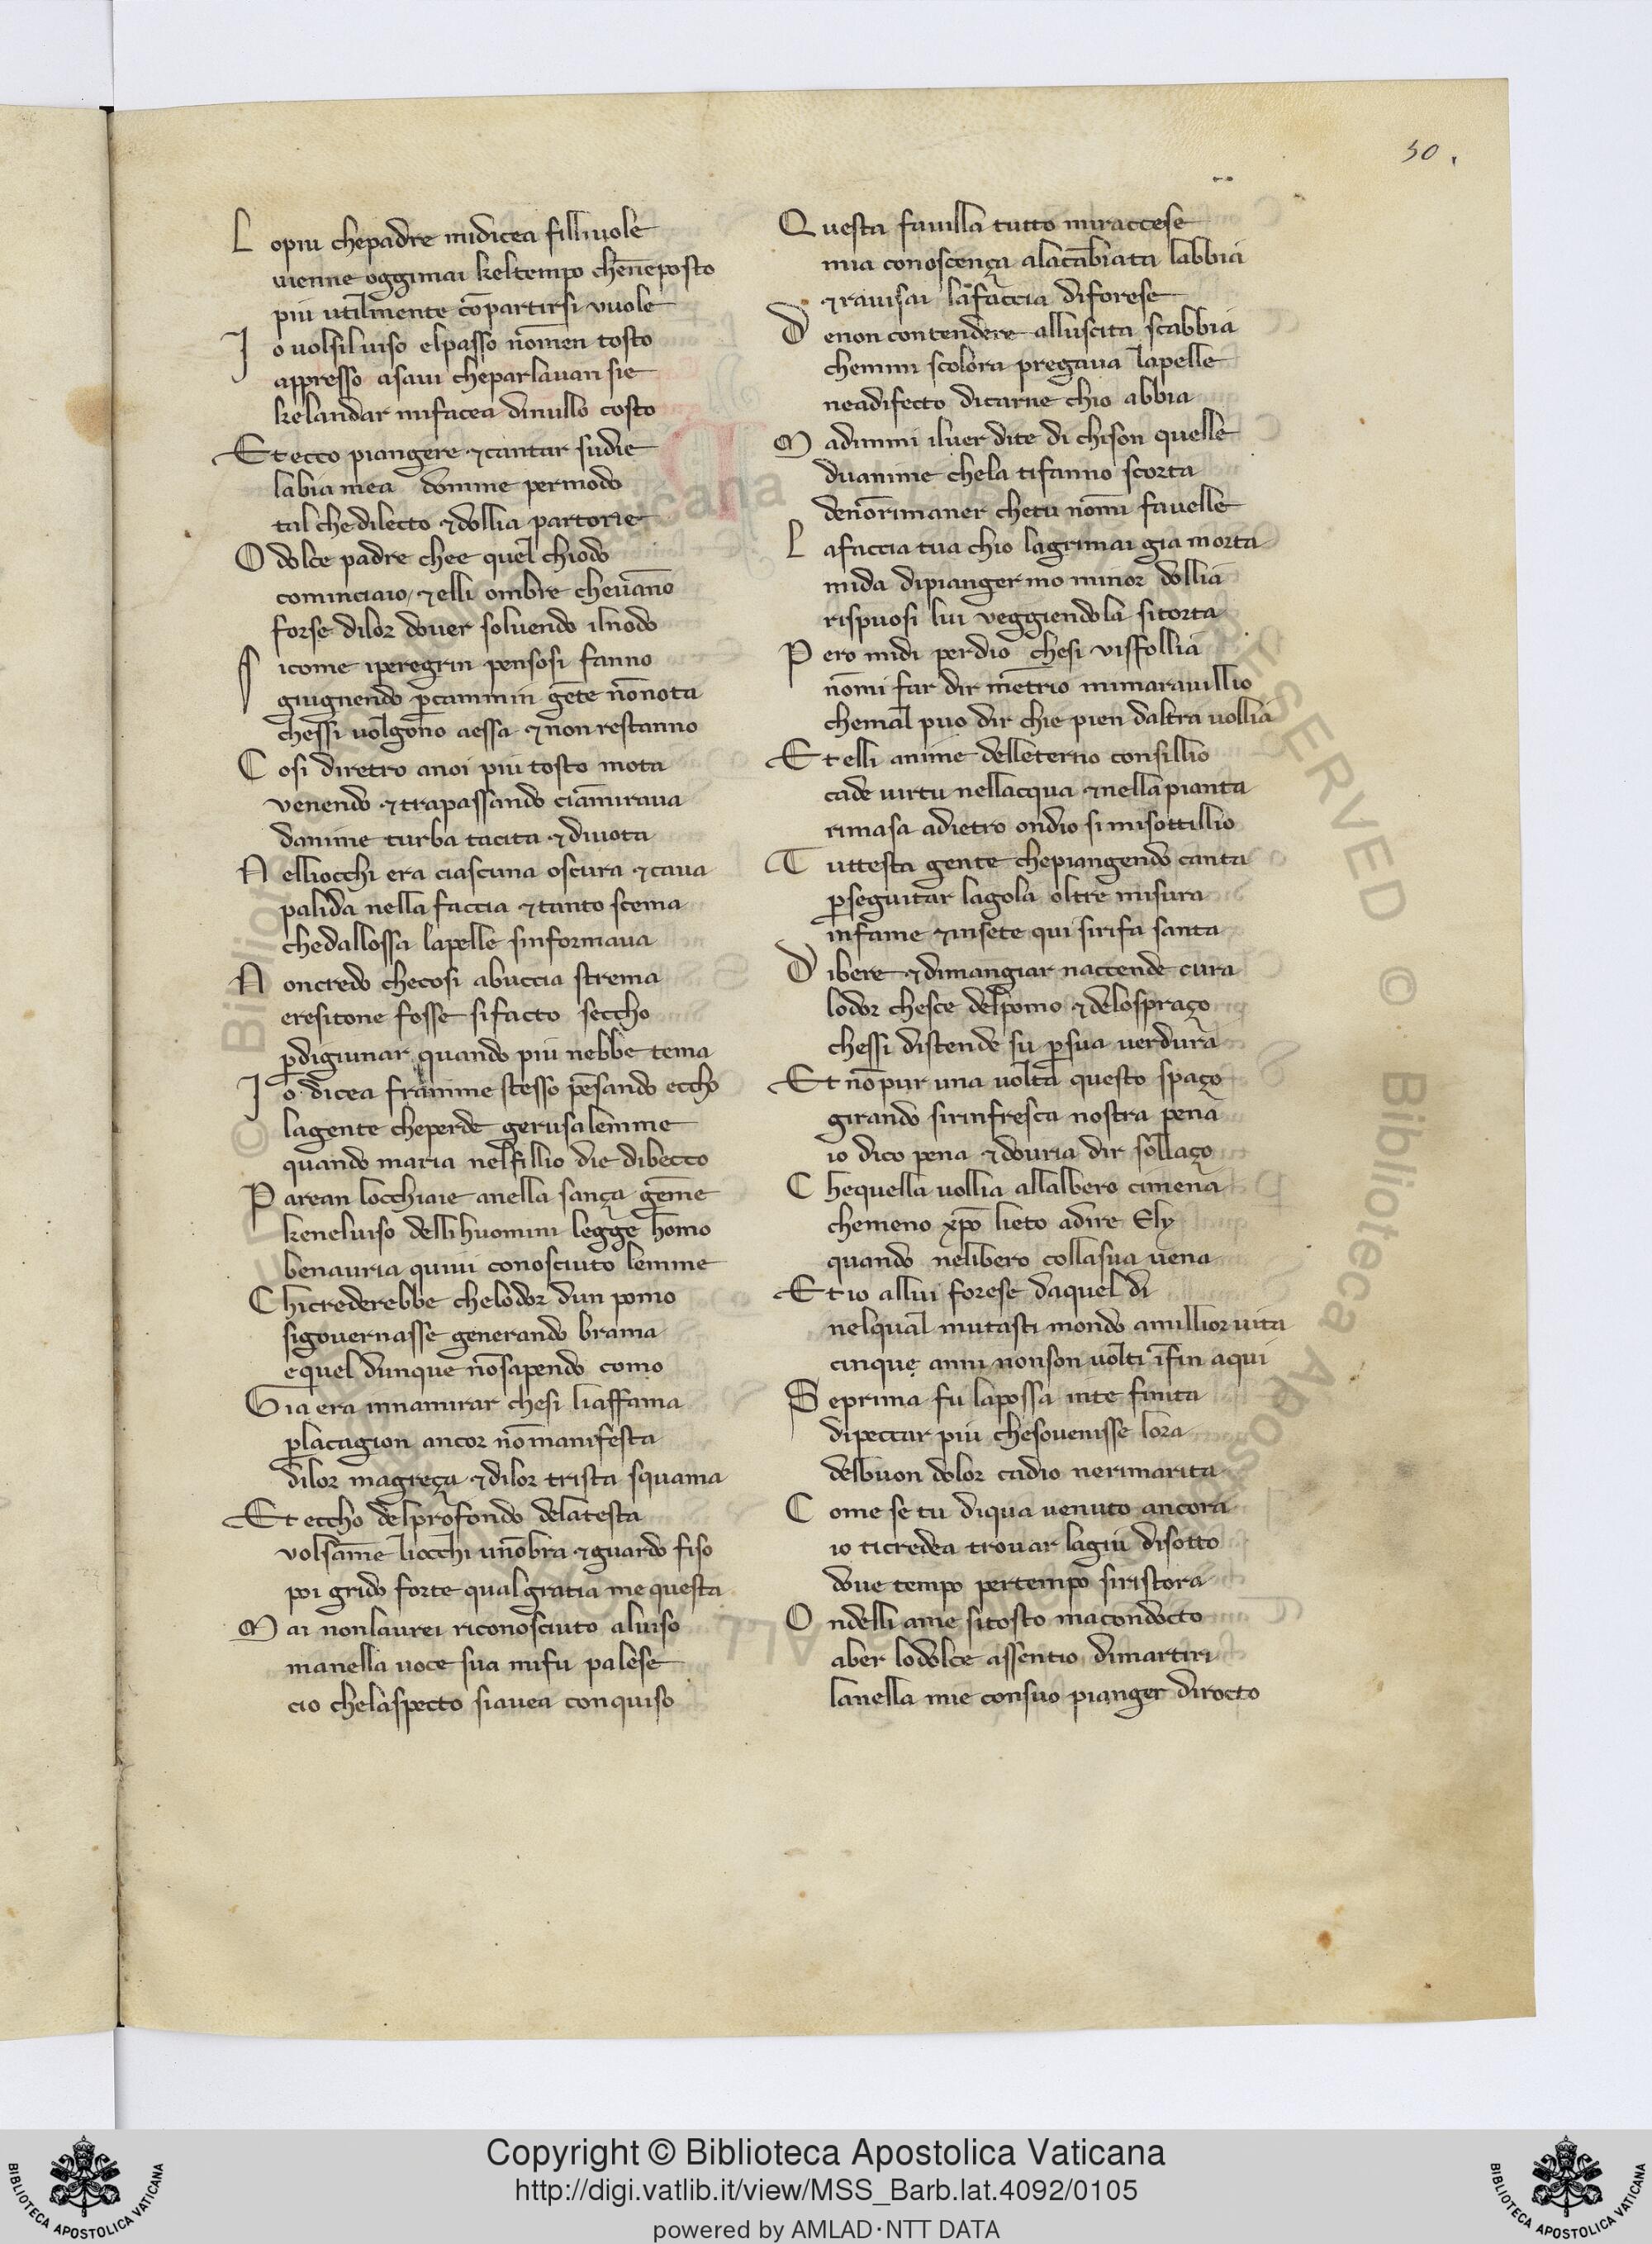 50.
L opiu chepadre midicea filliuole
uienne oggimai keltempo chen̄eposto
piu utilmente cōpartirsi vuole
J o uolsiluiso elpasso nōmen tosto
appresso asaui cheparlauan sie
kelandar mifacea dinullo costo
Et ecco piangere ⁊cantar sudie
labia mea domine permodo
tal chediletto ⁊dollia partorie
O dolce padre chee quel chiodo
cominciaio/ ⁊elli ombre cheuan̄o
forse dilor douer soluendo ilnodo
S icome iperegrin pensosi fanno
giugnendo ꝑcammin gēte nōnota
chessi uolgon̄o aessa ⁊non restanno
C osi diretro anoi piu tosto mota
venendo ⁊trapassando ciam̄iraua
danime turba tacita ⁊diuota
N elliocchi era ciascuna oscura ⁊caua
palida nella faccia ⁊tanto scema
chedallossa lapelle sinformaua
N oncredo checosi abuccia strema
eresitone fosse sifacto seccho
ꝑdigiunar quando piu nebbe tema
J o dicea framme stesso pēsando eccho
lagente cheperde gerusalemme
quando maria nelfillio die dibecco
P arean locchiaie anella sança gēme
keneluiso dellihuomini legge homo
benauria quiui conosciuto lemme
C hicrederebbe chelodor dun pomo
sigouernasse generando brama
equel dunque nōsapendo como
G ia era innamirar chesi liaffama
ꝑlacagion ancor nōmanifesta
dilor magreça ⁊dilor trista squama
Et eccho delprofondo delatesta
volsam̄e liocchi un̄obra ⁊guardo fiso
poi grido forte qual gratia me questa
M ai nonlaurei riconosciuto aluiso
manella uoce sua mifu palese
cio chelaspecto siauea conquiso
Q uesta fauilla tutto miraccese
mia conoscença alacābiata labbia
⁊rauisai lafaccia diforese
D enon contendere allascita scabbia
chemmi scolora pregaua lapelle
neadifecto dicarne chio abbia
M adimmi iluer dite di chison quelle
duanime chela tifanno scorta
den̄orimaner chetu nōmi fauelle
L afaccia tua chio lagrimai gia morta
mida dipianger mo minor dollia
rispuosi lui veggiendola sitorta
P ero midi perdio chesi uisfollia
nōmi far dir mētrio mimarauillio
chemal puo dir chie pien daltra uollia
Et elli anime delleterno consillio
cade uirtu nellacqua ⁊nella pianta
rimasa adietro ondio simisottillio
T uttesta gente chepiangendo canta
ꝑseguitar lagola oltre misura
infame ⁊insete qui sirifa santa
D ibere ⁊dimangiar naccende cura
lodor chesce delpomo ⁊delospraço
chessi distende su ꝑsua uerdura
Et nōpur una uolta questo spaço
girando sirinfresca nostra pena
io dico pena ⁊douria dir sollaço
C hequella uollia allalbero cimena
chemeno xp̄o lieto adire Ely
quando nelibero collasua uena
Et io allui forese daquel di
nelqual mutasti mondo amillior uita
cinque anni nonson uolti īfin aqui
S eprima fu lapossa inte finita
dipeccar piu chesouenisse lora
delbuon dolor cadio nerimarita
C ome se tu diqua uenuto ancora
io ticredea trouar lagiu disotto
doue tempo pertempo siristora
O ndelli ame sitosto macondocto
aber lodolce assentio dimartiri
lanella mie consuo pianger dirocto
© Biblioteca Apostolica Vaticana
ALL RIGHTS RESERVED
Copyright © Biblioteca Apostolica Vaticana
http://digi.vatlib.it/view/MSS_Barb.lat.4092/0105
powered by AMLAD·NTT DATA
BIBLIOTECA APOSTOLICA VATICANA
BIBLIOTECA APOSTOLICA VATICANA